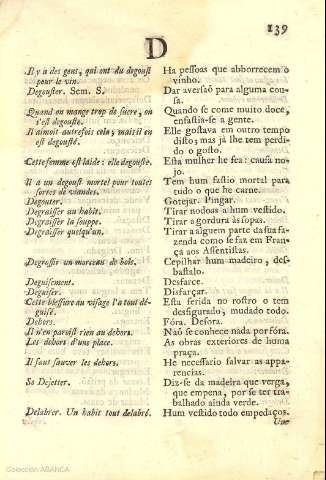 139
D
Il y a des gens, qui ont du degoust
pour le vin.
Ha pessoas que abborrecem o
vinho.
Degouster. Sem. S.
Dar aversaõ para alguma cou-
sa.
Quand on mange trop de sucre, on
s'est degouste.
Quando se come muito doce,
enfastia-se a gente.
Il aimoit autrefois cela, mais il en
est degousté.
Elle gostava em outro tempo
disto; mas já lhe tem perdi-
do o gosto.
Cette femme est laide: elle degouste.
Esta mulher he fea: causa no-
jo.
Il a un degoust mortel pour toutes
sortes de viandes.
Tem hum fastio mortal para
tudo o que he carne.
Degouter.
Gotejar. Pingar.
Degraisser un habit.
Tirar nodoas a hum vestido.
Degraisser la souppe.
Tirar a gordura às sopas.
Degraisser quelqu'un.
Tirar a alguem parte da sua fa-
zenda como se faz em Fran-
ça aos Assentistas.
Degrossir un morceau de bois.
Cepilhar hum madeiro, des-
bastalo.
Deguisement.
Desfarce.
Deguiser.
Disfarçar.
Cette blessure au visage l'a tout dé-
guisé.
Esta ferida no rostro o tem
desfigurado, mudado todo.
Dehors.
Fóra. Defóra.
Il n'en paroist rien au dehors.
Naõ se conhece nada por fóra.
Les dehors d'une place.
As obras exteriores de huma
praça.
Il faut sauver les dehors.
He necessario salvar as appa-
rencias.
Se Dejetter.
Diz-se da madeira que verga,
que empena, por se ter tra-
balhado ainda verde.
Delabrer. Un habit tout delabré.
Hum vestido todo empedaços.
Colección ABANCA